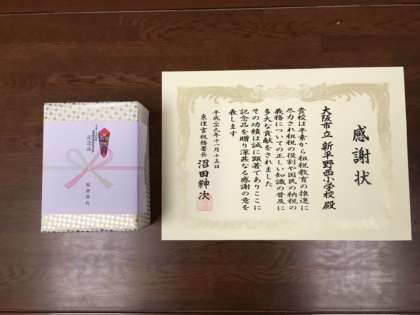 感謝状
大阪市立 新平野西小学校 殿
貴校は平素から租税教育の推進に
尽力され租税の役割や国民の納税の
義務についての正しい知識の普及に
多大な貢献をされました
その功績は誠に顕著でありここに
記念品を贈り深甚なる感謝の意を
表します
平成二十九年十一月十五日
東住吉税務署長 沼田紳次